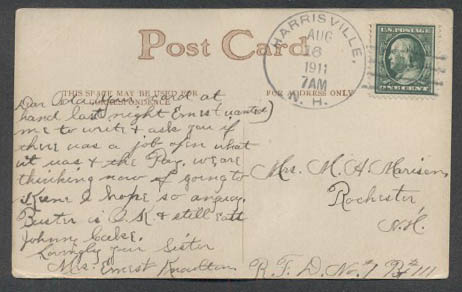 Post Card
HARRISVILLE,
AUG
16
1911
7AM
N. H.
U.S. POSTAGE
ONE CENT
THIS SPACE MAY BE USED FOR
CORRESPONDENCE
FOR ADDRESS ONLY
Dear Your card at
hand last night Ernest wanted
me to write & ask you if
there was a job open what
it was & the Pay. we are
thinking now of going to
Keene I hope so anyway.
Buster is O.K. & still eats
Johnny Cake.
Lovingly your Sister
Mrs. Ernest Knowlton
Mrs. M. H.
Rochester
N.H.
R.F.D. No. 1 Bx 111